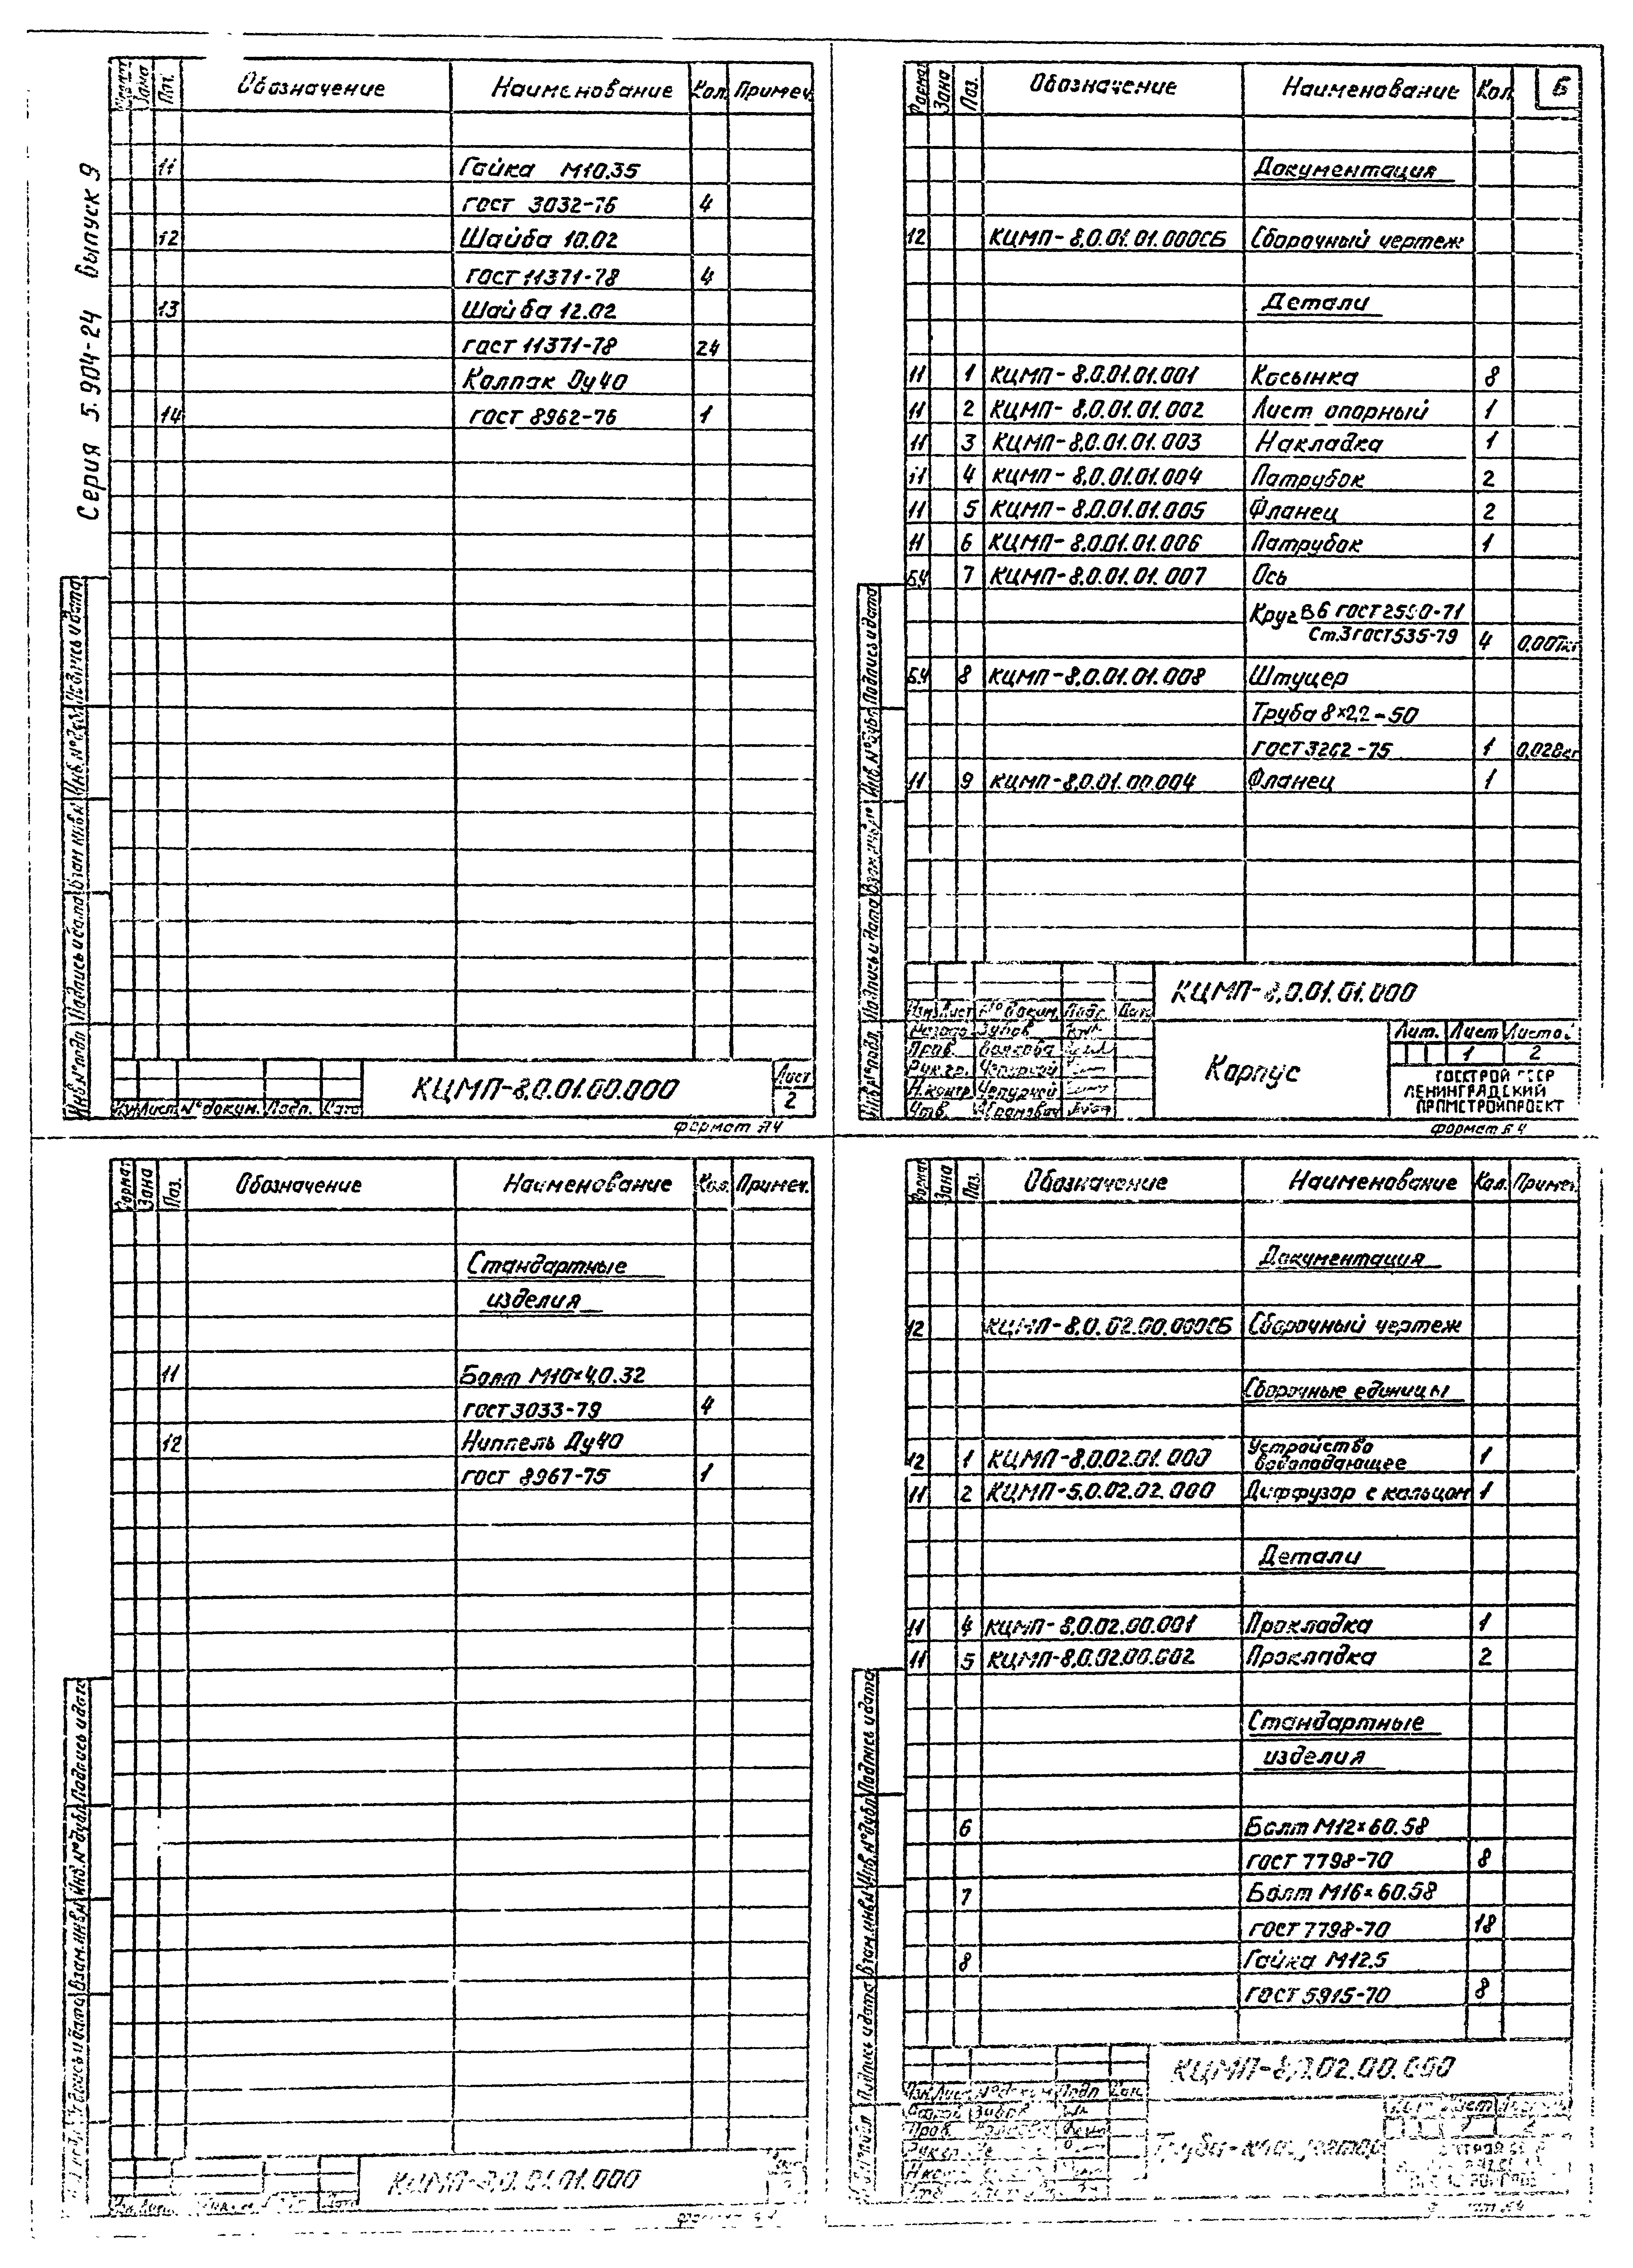 Серия 5.904-24 Выпуск 9
Формат Зона Поз. Обозначение Наименование Кол. Примеч.
11 Гайка М10.35
ГОСТ 3032-76 4
12 Шайба 10.02
ГОСТ 11371-78 4
13 Шайба 12.02
ГОСТ 11371-78 24
Колпак Ду40
14 ГОСТ 8962-76 1
Инв.№подл. Подпись и дата Взам.инв.№ Инв.№дубл. Подпись и дата
Изм. Лист №докум. Подп. Дата
КЦМП-8.0.01.00.000
Лист
2
Формат А4
Формат Зона Поз. Обозначение Наименование Кол. 6
Документация
12 КЦМП-8.0.01.01.000СБ Сборочный чертеж
Детали
11 1 КЦМП-8.0.01.01.001 Косынка 8
11 2 КЦМП-8.0.01.01.002 Лист опорный 1
11 3 КЦМП-8.0.01.01.003 Накладка 1
11 4 КЦМП-8.0.01.01.004 Патрубок 2
11 5 КЦМП-8.0.01.01.005 Фланец 2
11 6 КЦМП-8.0.01.01.006 Патрубок 1
БЧ 7 КЦМП-8.0.01.01.007 Ось
Круг В6 ГОСТ 2590-71
Ст.3 ГОСТ 535-79 4
БЧ 8 КЦМП-8.0.01.01.008 Штуцер
Труба 8×2,2-50
ГОСТ 3262-75 1 0,028кг
11 9 КЦМП-8.0.01.00.004 Фланец 1
Инв.№подл. Подпись и дата Взам.инв.№ Инв.№дубл. Подпись и дата
КЦМП-8.0.01.01.000
Изм. Лист №докум. Подп. Дата
Разраб. Зубов
Пров. Волкова
Рук.гр. Чепурной
Н.контр. Чепурной
Утв.
Корпус
Лит. Лист Листов
1 2
ГОССТРОЙ СССР
ЛЕНИНГРАДСКИЙ
ПРОМСТРОЙПРОЕКТ
Формат А4
Формат Зона Поз. Обозначение Наименование Кол. Примеч.
Стандартные
изделия
11 Болт М10×40.32
ГОСТ 3033-79 4
12 Ниппель Ду40
ГОСТ 8967-75 1
Подпись и дата Взам.инв.№ Инв.№дубл. Подпись и дата
КЦМП-8.0.01.01.000
Формат Зона Поз. Обозначение Наименование Кол. Примеч.
Документация
12 КЦМП-8.0.02.00.000СБ Сборочный чертеж
Сборочные единицы
12 1 КЦМП-8.0.02.01.000 Устройство
водоподающее 1
11 2 КЦМП-5.0.02.02.000 Диффузор с кольцом 1
Детали
11 4 КЦМП-8.0.02.00.001 Прокладка 1
11 5 КЦМП-8.0.02.00.002 Прокладка 2
Стандартные
изделия
6 Болт М12×60.58
ГОСТ 7798-70 8
7 Болт М16×60.58
ГОСТ 7798-70 18
8 Гайка М12.5
ГОСТ 5915-70 8
Подпись и дата Взам.инв.№ Инв.№дубл. Подпись и дата
КЦМП-8.0.02.00.000
Изм. Лист №докум. Подп. Дата
Зубов
Пров.